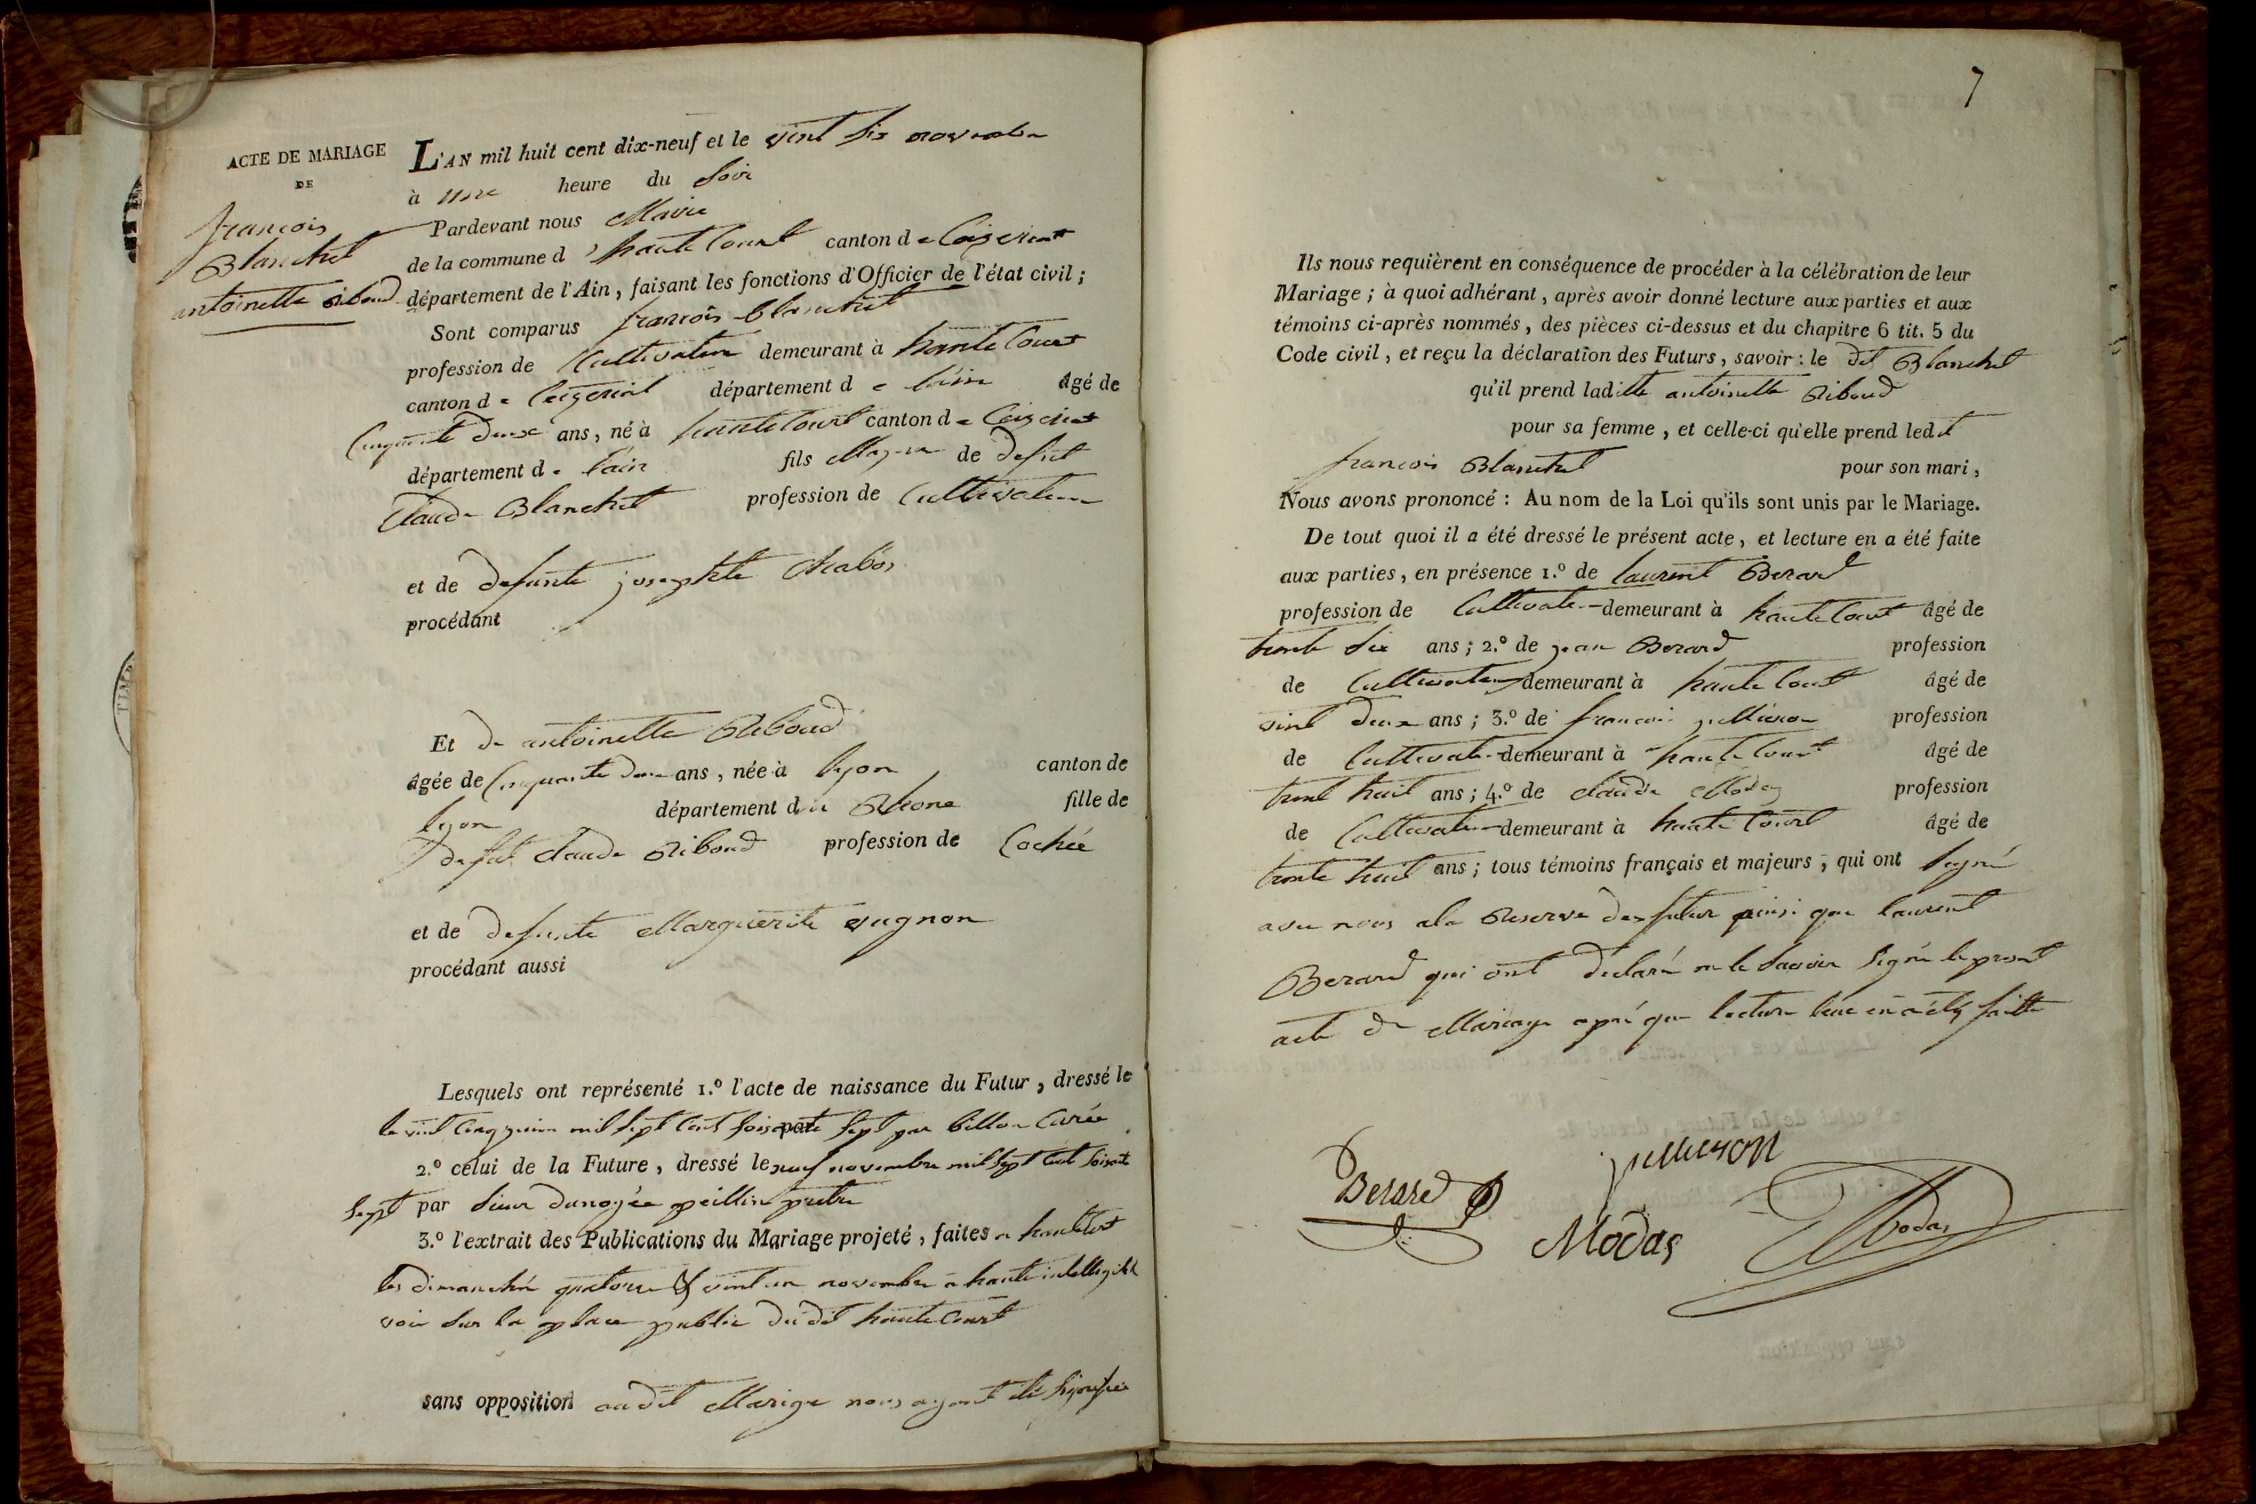 ACTE DE MARIAGE
DE
françois
Blanchet
antoinette Riboud
L'AN mil huit cent dix-neuf et le vint six novembre
à une heure du soir
Pardevant nous Maire
de la commune d'hautecourt canton de Ceizeriat
département de l'Ain, faisant les fonctions d'Officier de l'état civil;
Sont comparus françois Blanchet
profession de Cultivateur demeurant à hautecourt
canton de Ceizeriat département de l'ain âgé de
Cinquante deux ans, né à hautecourt canton de Ceizeriat
département de l'ain fils Majeur de defunt
Claude Blanchet profession de Cultivateur
et de defunte josephte Chabos
procédant
Et de antoinette Riboud
âgée de Cinquante deux ans, née à lyon canton de
lyon département du Rhone fille de
defut Claude Riboud profession de Cochée
et de defunte Marguerite vugnon
procédant aussi
Lesquels ont représenté 1.º l'acte de naissance du Futur, dressé le
le vint Cinq juin mil sept Cent soisante sept par billon Curée
2.º celui de la Future, dressé le neuf novembre mil sept Cent soisante
sept par sieur dunoyée peillin pretre
3.º l'extrait des Publications du Mariage projeté, faites a hautecourt
les dimanche quatorze & vint un novembre a haute intelligible
voix sur la place public du dit hautecourt
sans opposition audit Mariage nous ayant été signifiée
7
Ils nous requièrent en conséquence de procéder à la célébration de leur
Mariage; à quoi adhérant, après avoir donné lecture aux parties et aux
témoins ci-après nommés, des pièces ci-dessus et du chapitre 6 tit. 5 du
Code civil, et reçu la déclaration des Futurs, savoir: le dit Blanchet
qu'il prend laditte antoinette Riboud
pour sa femme, et celle-ci qu'elle prend ledit
françois Blanchet pour son mari,
Nous avons prononcé: Au nom de la Loi qu'ils sont unis par le Mariage.
De tout quoi il a été dressé le présent acte, et lecture en a été faite
aux parties, en présence 1.º de laurent Berard
profession de Cultivateur demeurant à hautecourt âgé de
trente six ans; 2.º de jean Berard profession
de Cultivateur demeurant à hautecourt âgé de
vint deux ans; 3.º de françois jullieron profession
de Cultivateur demeurant à hautecourt âgé de
trent huit ans; 4.º de Claude Modas profession
de Cultivateur demeurant à hautecourt âgé de
trente huit ans; tous témoins français et majeurs, qui ont signé
avec nous ala Reserve des futur ainsi que laurent
Berard qui ont déclaré ne le savoir signé le present
acte de Mariage apré que lecture leur en a été faitte
Berard
jullieron
Modas
Modas